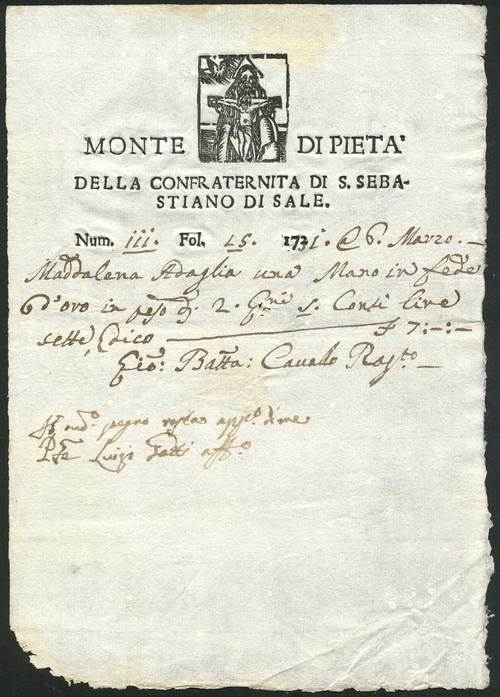 MONTE DI PIETA'
DELLA CONFRATERNITA DI S. SEBA-
STIANO DI SALE.
Num. iii. Fol. 15. 1731. @ 6. Marzo.
Maddalena Adaglia una Mano in fede
d'oro in peso d: 2. S. Conti lire
sette, Dico £ 7:-:-
Gio: Batta: Cavallo Rag.to
Il sud.o pegno resta app.o di me
Luigi Gatti aff.o